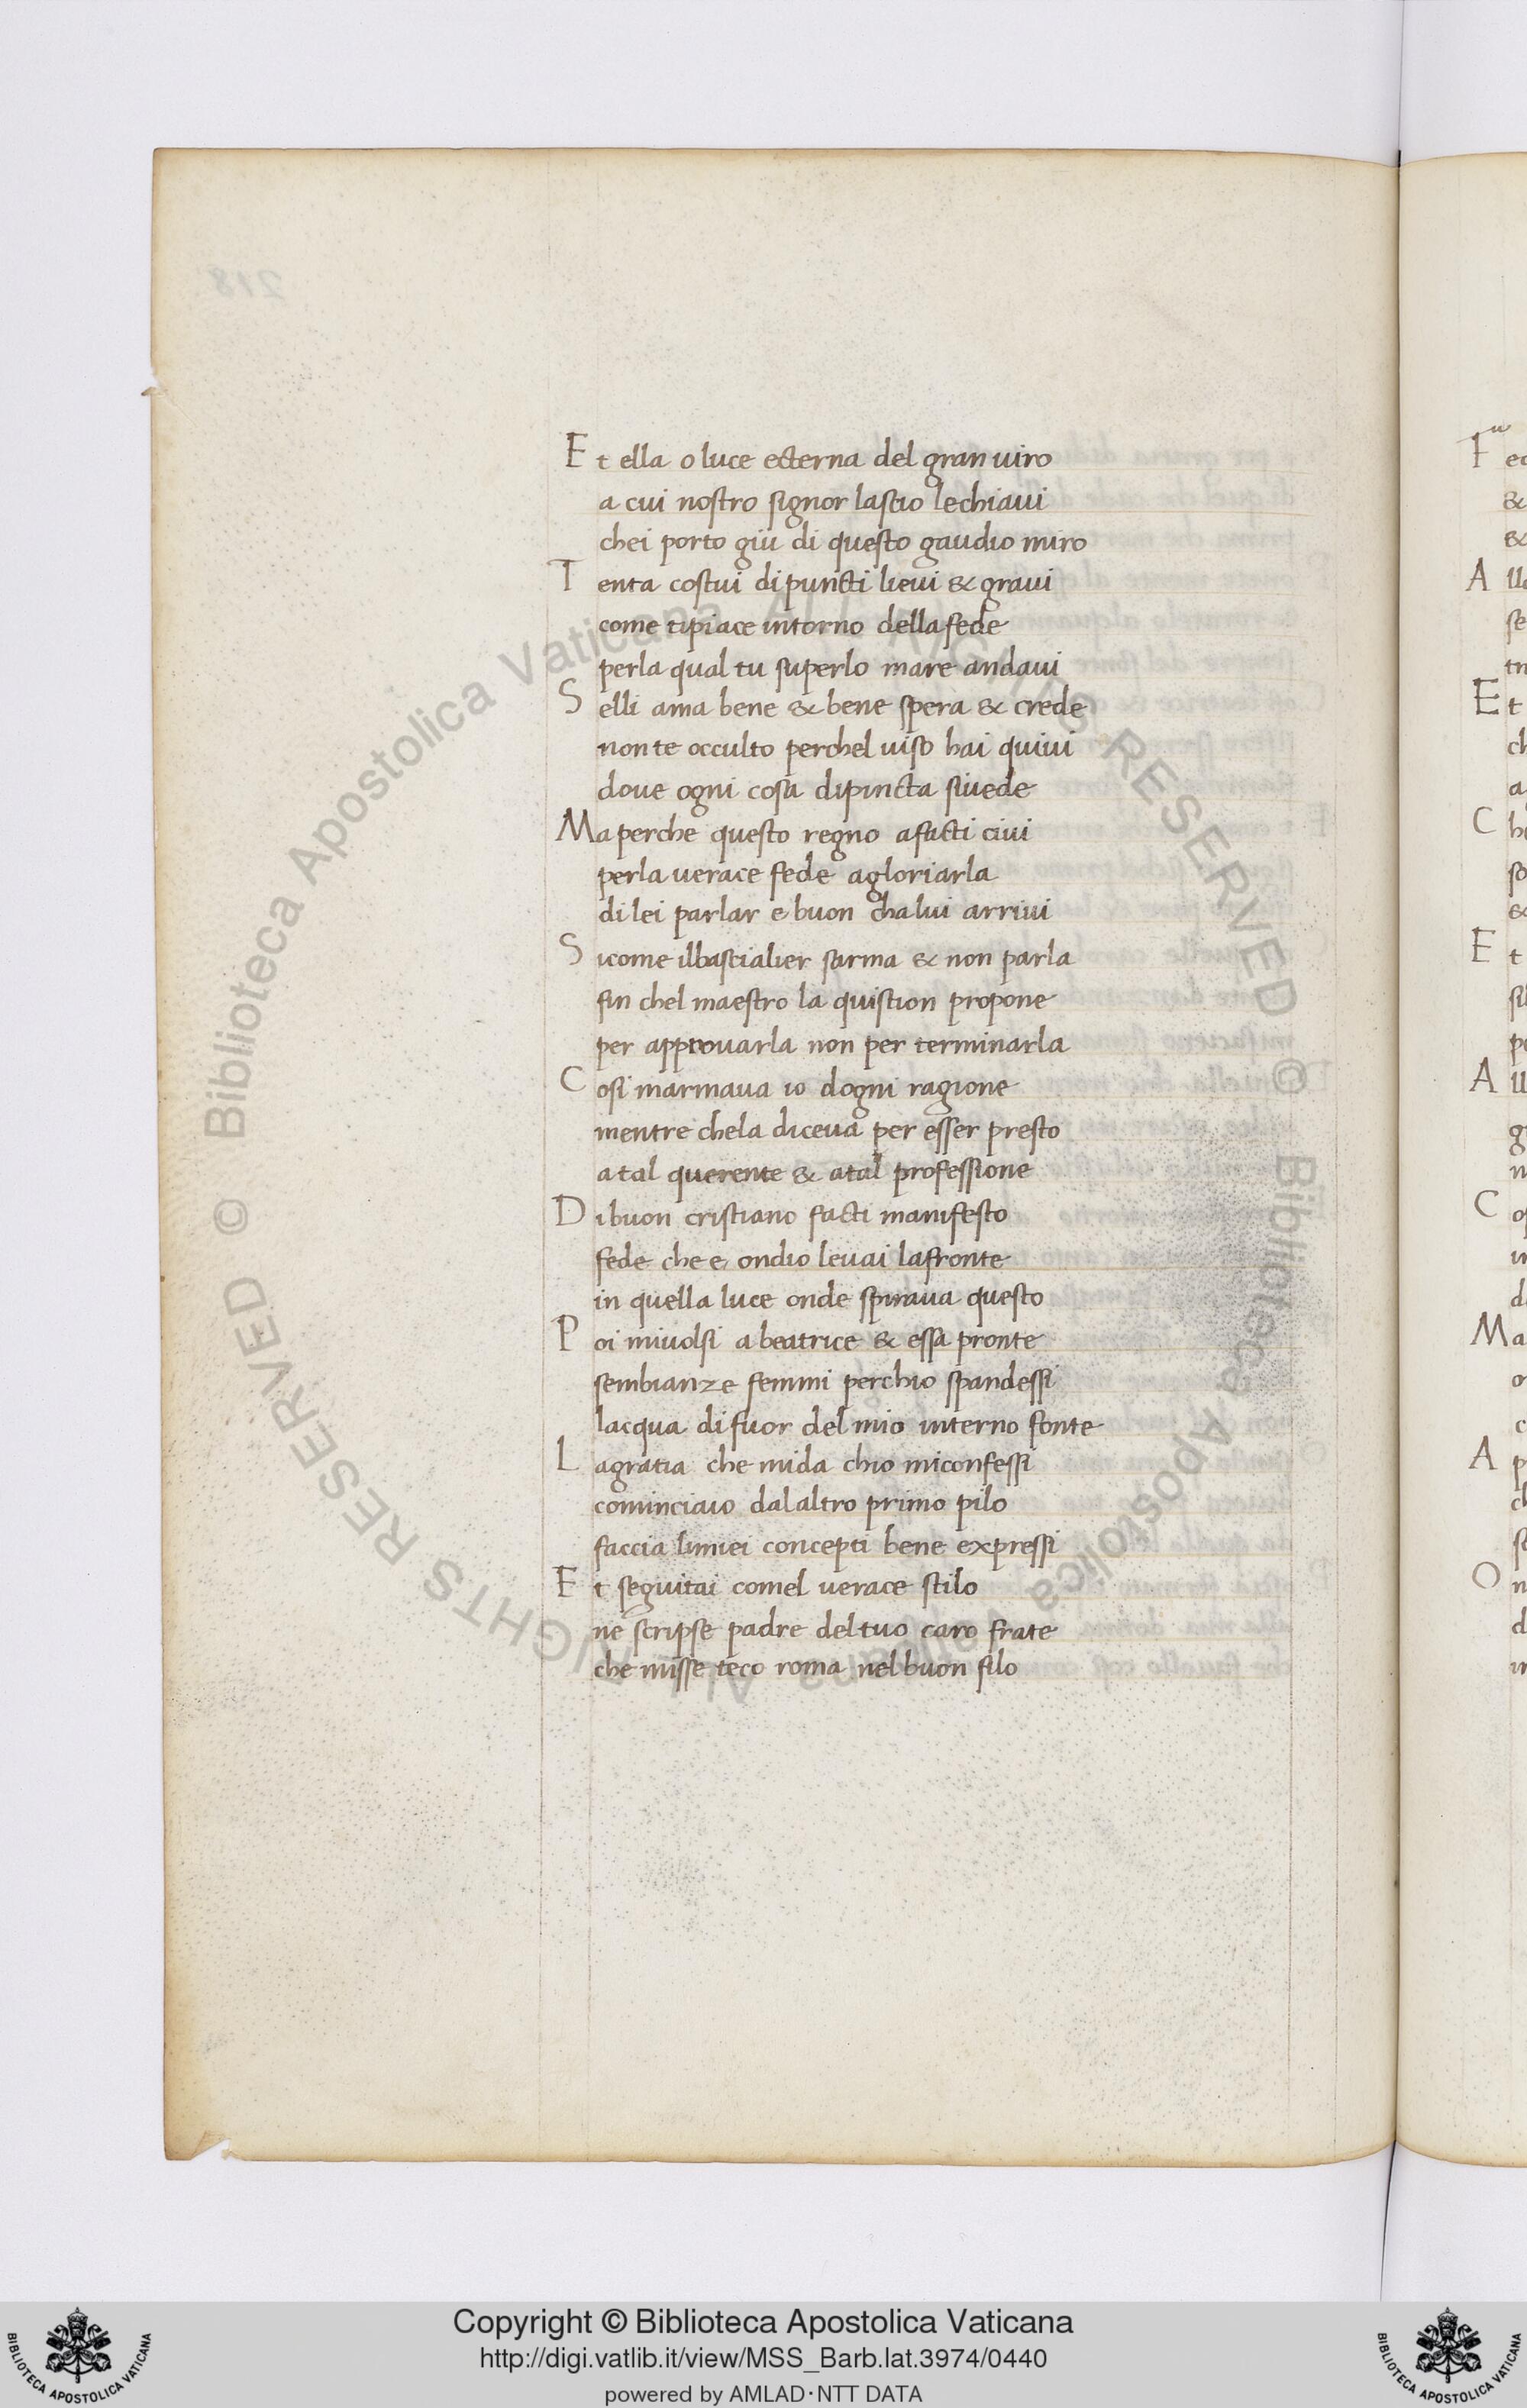 Et ella o luce ecterna del gran uiro
a cui nostro signor lascio lechiaui
chei porto giu di questo gaudio miro
Tenta costui di puncti lieui & graui
come tipiace intorno della fede
perla qual tu superlo mare andaui
Selli ama bene & bene spera & crede
non te occulto perchel uiso hai quiui
doue ogni cosa dipincta siuede
Ma perche questo regno a facti ciui
perla uerace fede a gloriarla
di lei parlar e buon cha lui arriui
Sicome il bascialier sarma & non parla
fin chel maestro la quistion propone
per approuarla non per terminarla
Cosi marmaua io dogni ragione
mentre chela diceua per esser presto
a tal querente & a tal professione
Di buon cristiano facti manifesto
fede che e ondio leuai la fronte
in quella luce onde spiraua questo
Poi miuolsi a beatrice & essa pronte
sembianze femmi perchio spandessi
lacqua di fuor del mio interno fonte
La gratia che mida chio miconfessi
cominciaio dal altro primo pilo
faccia limiei concepti bene expressi
Et seguitai comel uerace stilo
ne scripse padre del tuo caro frate
che misse teco roma nel buon filo
218
Copyright © Biblioteca Apostolica Vaticana
http://digi.vatlib.it/view/MSS_Barb.lat.3974/0440
powered by AMLAD·NTT DATA
BIBLIOTECA APOSTOLICA VATICANA
BIBLIOTECA APOSTOLICA VATICANA
© Biblioteca Apostolica Vaticana ALL RIGHTS RESERVED © Biblioteca Apostolica Vaticana ALL RIGHTS RESERVED